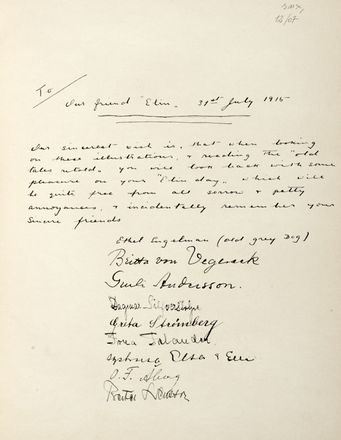 To
Our friend "Elin. 31st July 1915
Our sincerest wish is, that when looking
on these illustrations, & reading the "old
tales retold, you will look back with some
pleasure on your "Elin day, which will
be quite free from all sorrow & petty
annoyances, & incidentally remember your
sincere friends
Ethel Engelman (old grey Dog)
Britta von Vegesack
Gurli Andersson.
Dagmar Silfverstolpe
Greta Strömberg
Tora
Elsa &
O. F.